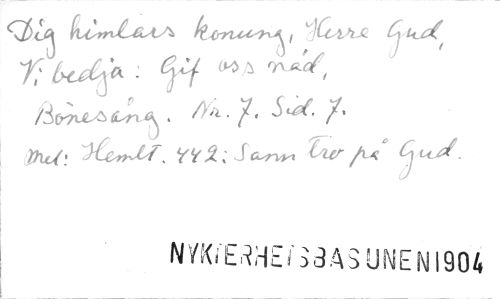 Dig himlars konung, Herre Gud,
Vi bedja: Gif oss nåd,
Bönesång. Nr. 7. Sid. 7.
Mel: Hemlt. 442: Sann tro på Gud.
NYKTERHETSBASUNEN 1904